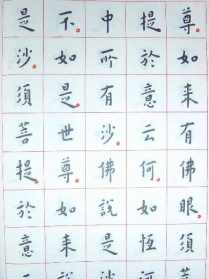 尊如来有佛眼須菩
提於意云何如恒河
中所有沙佛說是沙
不如是世尊如来說
是沙須菩提於意